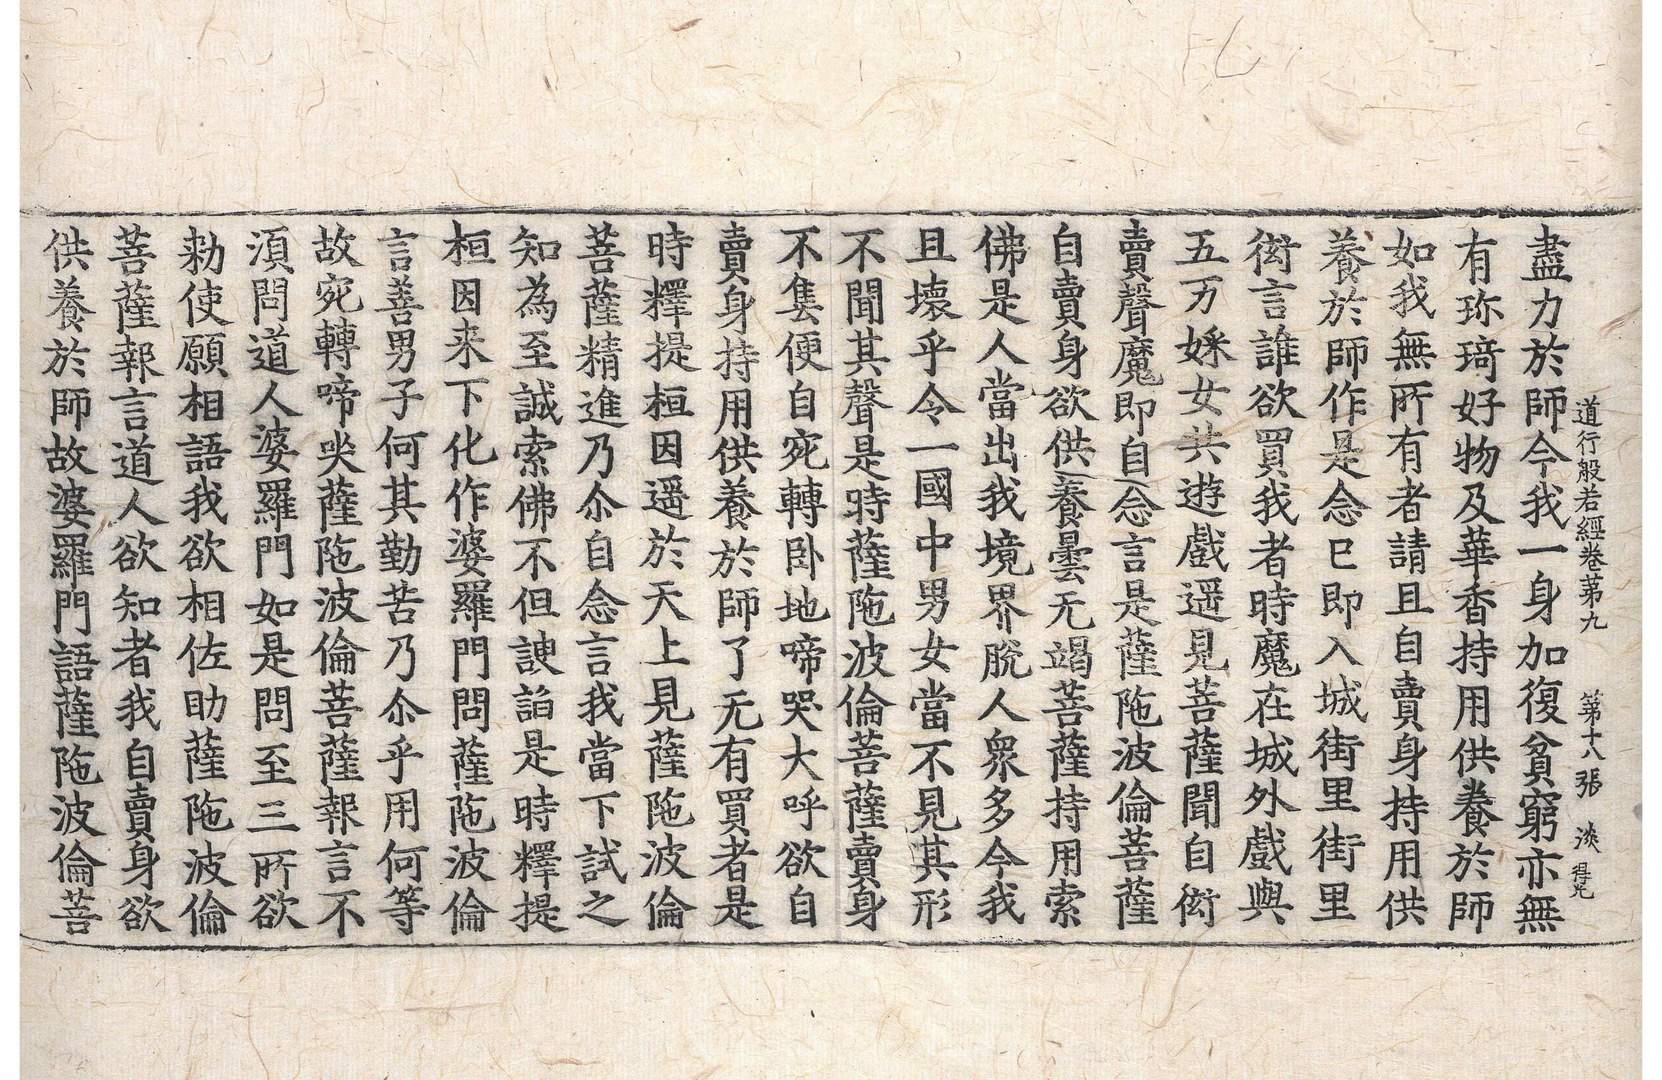 道行般若經卷第九 第十八張 淡 得光
盡力於師今我一身加復貧窮亦無
有珎琦好物及華香持用供養於師
如我無所有者請且自賣身持用供
養於師作是念已即入城街里街里
衒言誰欲買我者時魔在城外戲與
五万婇女共遊戲遥見菩薩聞自衒
賣聲魔即自念言是薩陁波倫菩薩
自賣身欲供養曇无竭菩薩持用索
佛是人當出我境界脫人衆多今我
且壞乎令一國中男女當不見其形
不聞其聲是時薩陁波倫菩薩賣身
不售便自宛轉卧地啼哭大呼欲自
賣身持用供養於師了无有買者是
時釋提桓因遥於天上見薩陁波倫
菩薩精進乃尒自念言我當下試之
知為至誠索佛不但諛諂是時釋提
桓因来下化作婆羅門問薩陁波倫
言善男子何其勤苦乃尒乎用何等
故宛轉啼哭薩陁波倫菩薩報言不
湏問道人婆羅門如是問至三所欲
勑使願相語我欲相佐助薩陁波倫
菩薩報言道人欲知者我自賣身欲
供養於師故婆羅門語薩陁波倫菩